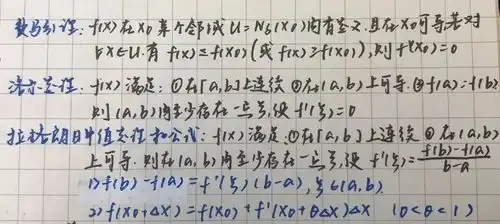 费马引理: f(x)在x₀某个邻域U=Nδ(x₀)内有定义.且在x₀可导.若对
∀x∈U.有 f(x)≤f(x₀)(或f(x)≥f(x₀)),则f'(x₀)=0
洛尔定理. f(x)满足:①在[a,b]上连续②在(a,b)上可导.③f(a)=f(b)
则(a,b)内至少存在一点ξ,使f'(ξ)=0
拉格朗日中值定理和公式: f(x)满足.①在[a,b]上连续②在(a,b)
上可导.则在(a,b)内至少存在一点ξ,使 f'(ξ)=\frac{f(b)-f(a)}{b-a}
1)f(b)-f(a)=f'(ξ)(b-a),ξ∈(a,b)
2)f(x₀+Δx)=f(x₀)+f'(x₀+θΔx)Δx (0<θ<1)